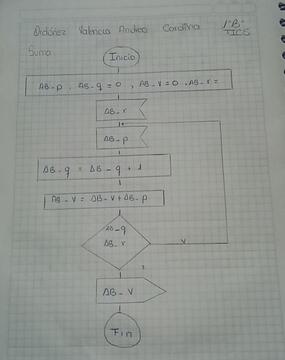 Ordoñez Valencia Andrea Carolina 1°"B"
TICS
Suma
Inicio
AB-p, AB-q = 0, AB-v = 0, AB-r =
AB-r
AB-p
AB-q = AB-q + 1
AB-v = AB-v + AB-p
AB-q
AB-r
v
AB-v
Fin